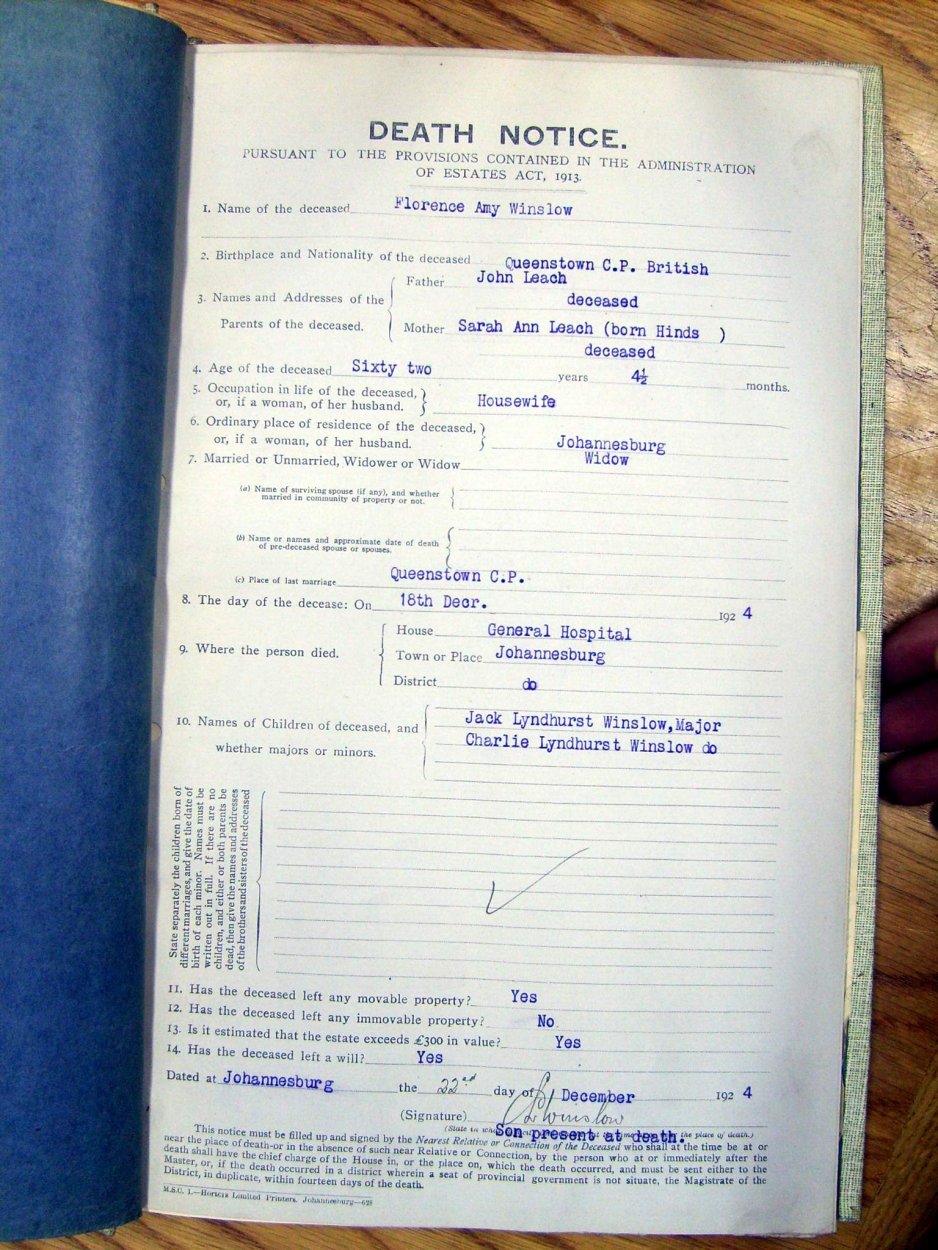 DEATH NOTICE.
PURSUANT TO THE PROVISIONS CONTAINED IN THE ADMINISTRATION
OF ESTATES ACT, 1913.
1. Name of the deceased Florence Amy Winslow
2. Birthplace and Nationality of the deceased Queenstown C.P. British
3. Names and Addresses of the Parents of the deceased.
Father John Leach
deceased
Mother Sarah Ann Leach (born Hinds )
deceased
4. Age of the deceased Sixty two years 4½ months.
5. Occupation in life of the deceased,
or, if a woman, of her husband. Housewife
6. Ordinary place of residence of the deceased,
or, if a woman, of her husband. Johannesburg
7. Married or Unmarried, Widower or Widow Widow
(a) Name of surviving spouse (if any), and whether
married in community of property or not.
(b) Name or names and approximate date of death
of pre-deceased spouse or spouses.
(c) Place of last marriage Queenstown C.P.
8. The day of the decease: On 18th Decr. 192 4
9. Where the person died.
House General Hospital
Town or Place Johannesburg
District do
10. Names of Children of deceased, and
whether majors or minors.
Jack Lyndhurst Winslow,Major
Charlie Lyndhurst Winslow do
State separately the children born of
different marriages, and give the date of
birth of each minor. Names must be
written out in full. If there are no
children, and either or both parents be
dead, then give the names and addresses
of the brothers and sisters of the deceased
11. Has the deceased left any movable property? Yes
12. Has the deceased left any immovable property? No
13. Is it estimated that the estate exceeds £300 in value? Yes
14. Has the deceased left a will? Yes
Dated at Johannesburg the 22nd day of December 192 4
(Signature) Winslow
(State in the place of death.)
Son present at death.
This notice must be filled up and signed by the Nearest Relative or Connection of the Deceased who shall at the time be at or
near the place of death-or in the absence of such near Relative or Connection, by the person who at or immediately after the
death shall have the chief charge of the House in, or the place on, which the death occurred, and must be sent either to the
Master, or, if the death occurred in a district wherein a seat of provincial government is not situate, the Magistrate of the
District, in duplicate, within fourteen days of the death.
M.S.C. 1.—Hortors Limited Printers, Johannesburg—628